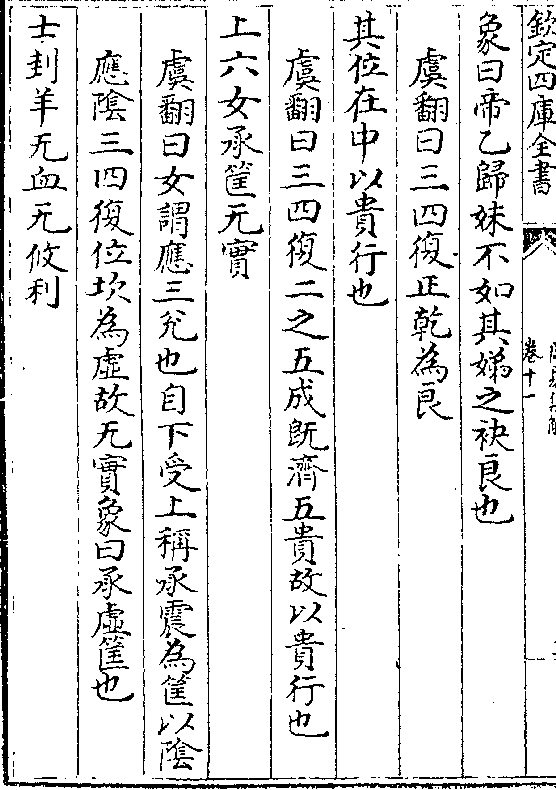 欽定四庫全書
卷十一
象曰帝乙歸妹不如其娣之袂良也
虞翻曰三四復正乾為良
其位在中以貴行也
虞翻曰三四復二之五成既濟五貴故以貴行也
上六女承筐无實
虞翻曰女謂應三兊也自下受上稱承震為筐以隂
應隂三四復位坎為虛故无實象曰承虛筐也
士刲羊无血无攸利